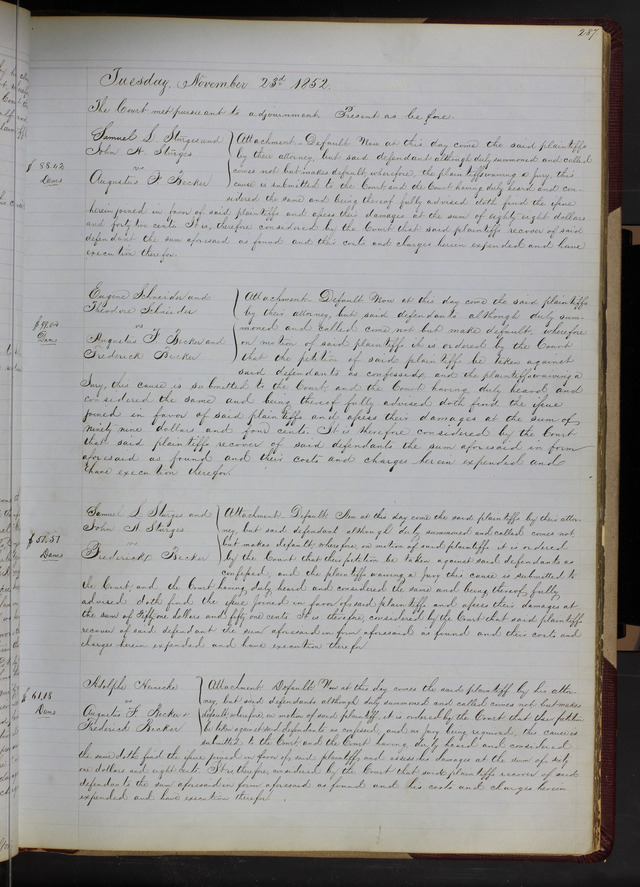 287
Tuesday, November 23d 1852.
The Court met pursuant to adjournment Present as before.
Samuel L. Sturges and
John A. Sturges
vs
Augustus F. Becker
$88.42
Dams
Attachment - Default Now at this day come the said plaintiffs
by their attorney, but said defendant although duly summoned and called
comes not but makes default, wherefore, the plaintiffs waiving a jury, this
cause is submitted to the Court and the Court having duly heard and con-
sidered the same and being thereof fully advised doth find the issue
herein joined in favor of said plaintiffs and assess their damages at the sum of eighty eight dollars
and forty two cents. It is, therefore considered by the Court that said plaintiffs recover of said
defendant the sum aforesaid as found and their costs and charges herein expended and have
execution therefor.
Eugene Schneider and
Theodore Schneider
vs
Augustus F. Becker and
Frederick Becker
$99.04
Dams
Attachment Default Now at this day come the said plaintiffs
by their attorney, but said defendants although duly sum-
moned and called come not but make default, wherefore
on motion of said plaintiffs it is ordered by the Court
that the petition of said plaintiffs be taken against
said defendants as confessed, and the plaintiffs waiving a
Jury, this cause is submitted to the Court, and the Court having duly heard, and
considered the same and being thereof fully advised doth find the issue
joined in favor of said plaintiffs and assess their damages at the sum of
ninety nine dollars and four cents. It is therefore considered by the Court
that said plaintiffs recover of said defendants the sum aforesaid in form
aforesaid as found and their costs and charges herein expended and
have execution therefor.
Samuel L. Sturges and
John A Sturges
vs
Frederick Becker
$51.51
Dams
Attachment Default Now at this day come the said plaintiffs by their attor-
ney, but said defendant although duly summoned and called comes not
but makes default, wherefore, on motion of said plaintiffs it is ordered
by the Court that their petition be taken against said defendant as
confessed, and the plaintiffs waiving a jury this cause is submitted to
the Court, and the Court having duly heard and considered the same and being thereof fully
advised doth find the issue joined in favor of said plaintiffs and assess their damages at
the sum of Fifty one dollars and fifty one cents It is therefore, considered by the Court that said plaintiffs
recover of said defendant the sum aforesaid in form aforesaid as found and their costs and
charges herein expended and have execution therefor
Adolphe
vs
Augustus F. Becker &
Frederick Becker
$61.18
Dams
Attachment Default Now at this day comes the said plaintiff by his attor-
ney, but said defendants although duly summoned and called comes not but makes
default, wherefore, on motion of said plaintiff, it is ordered by the Court that their petition
be taken against said defendants as confessed, and no jury being required, this cause is
submitted to the Court, and the Court having duly heard and considered
the same doth find the issue joined in favor of said plaintiff, and assess his damages at the sum of sixty
one dollars and eight cents. It is, therefore, considered by the Court that said plaintiffs recover of said
defendants the sum aforesaid in form aforesaid as found and his costs and charges herein
expended and have execution therefor.